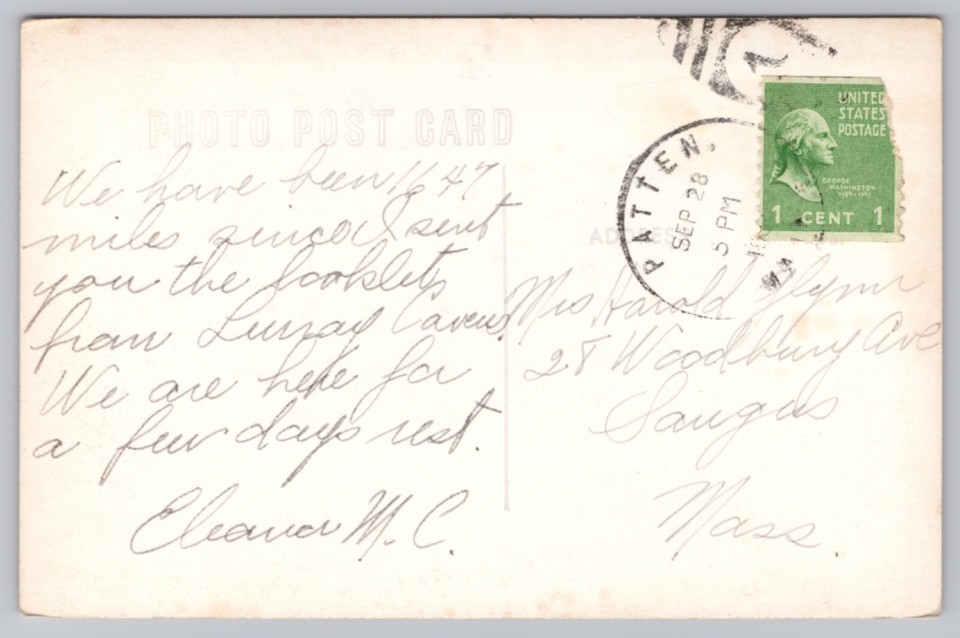 PHOTO POST CARD
We have been 1647
miles since I sent
you the booklets
from Lurray Caverns.
We are here for
a few days rest.
Eleanor M. C.
UNITED
STATES
POSTAGE
GEORGE
WASHINGTON
1789-1797
1 CENT 1
PATTEN.
SEP 28
5 PM
ADDRESS
Mrs Harold Flynn
28 Woodbury Ave
Saugus
Mass.